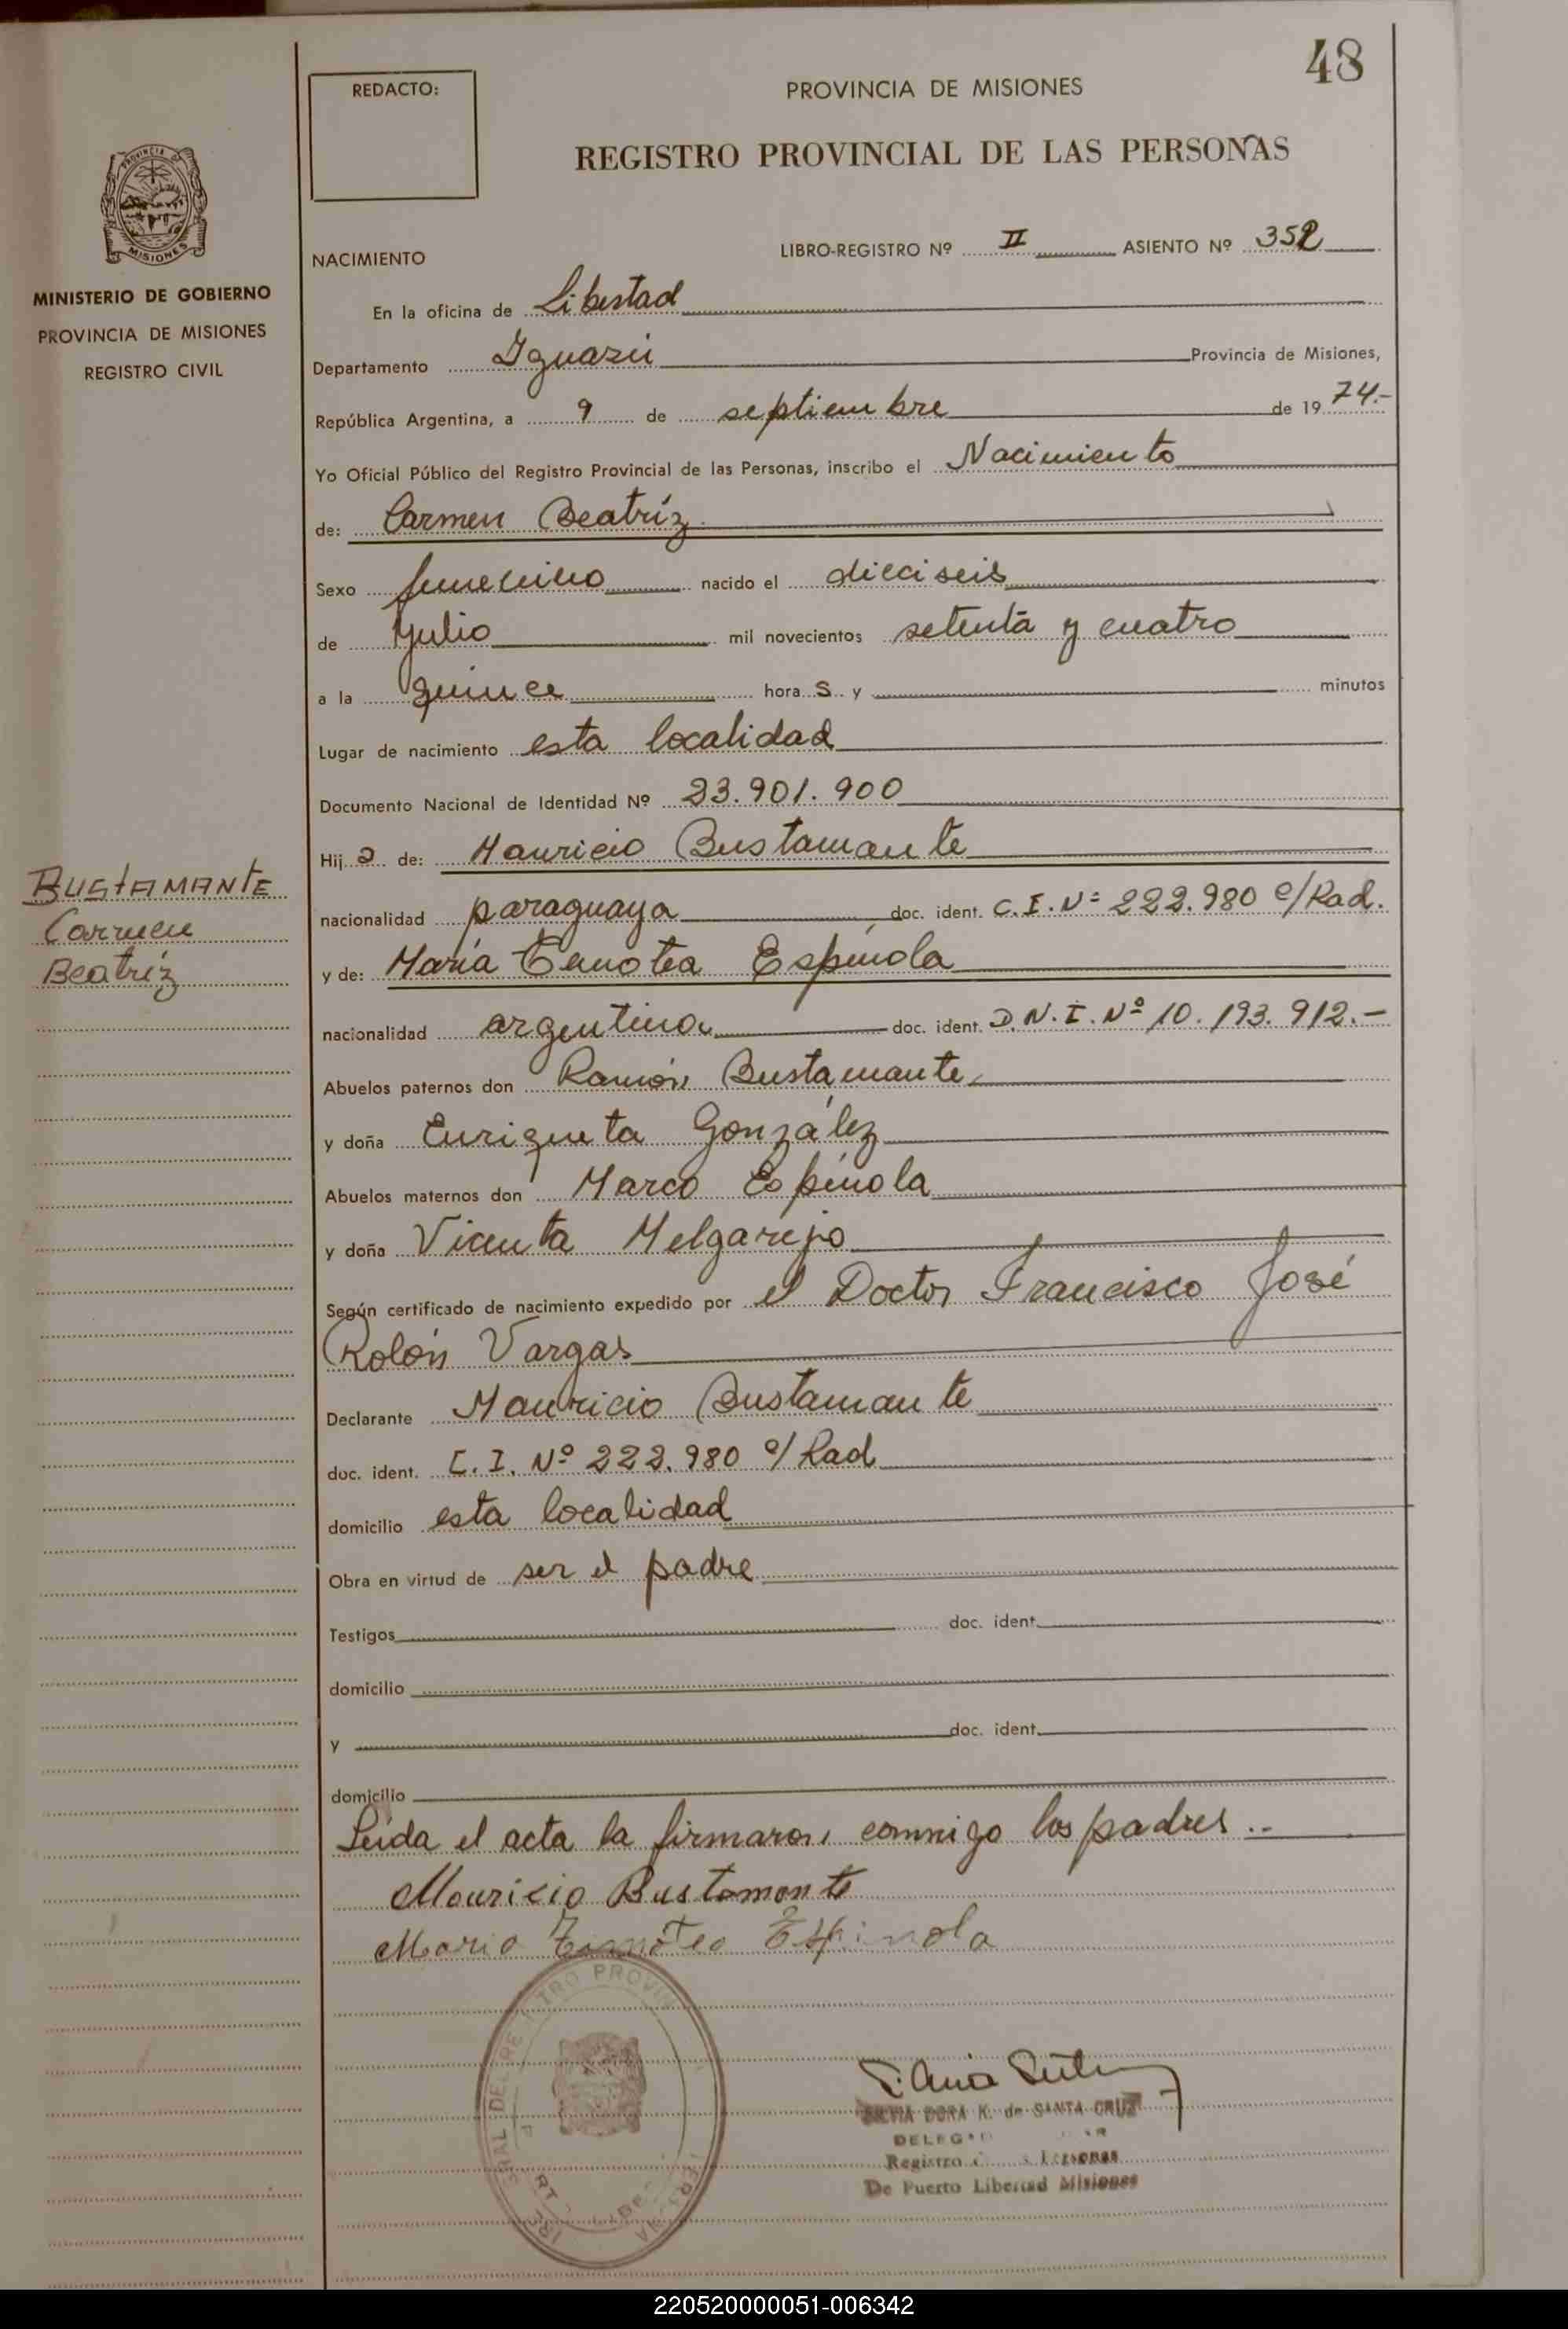 48
REDACTO:
PROVINCIA DE MISIONES
REGISTRO PROVINCIAL DE LAS PERSONAS
PROVINCIA DE
MISIONES
MINISTERIO DE GOBIERNO
PROVINCIA DE MISIONES
REGISTRO CIVIL
NACIMIENTO
LIBRO-REGISTRO Nº II ASIENTO Nº 352
En la oficina de Libertad
Departamento Iguazú Provincia de Misiones,
República Argentina, a 9 de septiembre de 19 74.-
Yo Oficial Público del Registro Provincial de las Personas, inscribo el Nacimiento
de: Carmen Beatríz
Sexo femenino nacido el dieciseis
de Julio mil novecientos setenta y cuatro
a la quince hora s y minutos
Lugar de nacimiento esta localidad
Documento Nacional de Identidad Nº 23.901.900
Hij a de: Mauricio Bustamante
BUSTAMANTE
Carmen
Beatríz
nacionalidad paraguaya doc. ident. C.I. Nº 222.980 c/Rad.
y de: María Espínola
nacionalidad argentina doc. ident. D.N.I. Nº 10.193.912.-
Abuelos paternos don Ramón Bustamante
y doña Enriqueta González
Abuelos maternos don Marco Espínola
y doña Vicenta Melgarejo
Según certificado de nacimiento expedido por el Doctor Francisco José
Rolón Vargas
Declarante Mauricio Bustamante
doc. ident. C.I. Nº 222.980 c/Rad
domicilio esta localidad
Obra en virtud de ser el padre
Testigos doc. ident.
domicilio
y doc. ident.
domicilio
Leída el acta la firmaron conmigo los padres..
Mauricio Bustamante
Maria Espinola
SILVIA DORA K. de SANTA CRUZ
Registro Personas
De Puerto Libertad Misiones
220520000051-006342